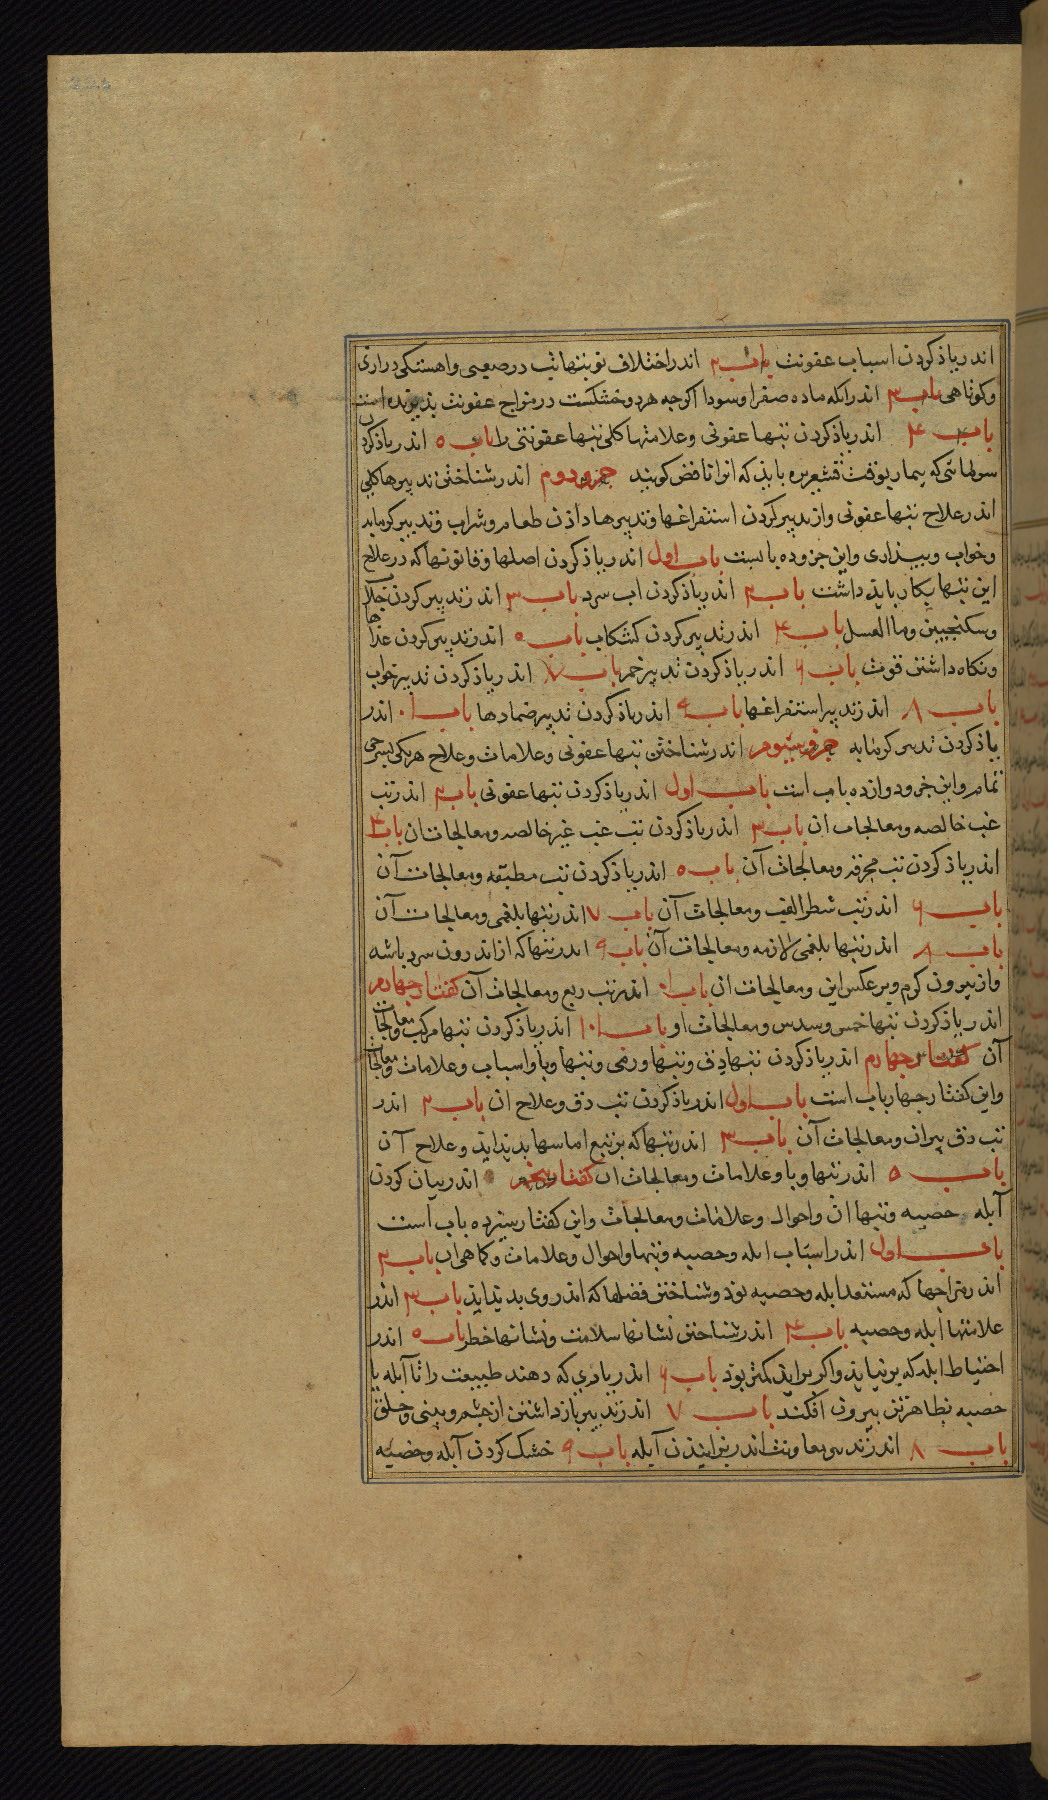 اندر یاذ کردن اسباب عفونت باب ۲ اندر اختلاف نوبتهاء تب در صعبی و اهستکی و درازی
و کوتاهی باب ۳ اندر انکه ماده صفرا و سودا اکرجه هر دو خشکست در مزاج عفونت بذیرنده است
باب ۴ اندر یاذ کردن تبها عفونی و علامتها کلی تبها عفونتی را باب ۵ اندر یاذ کردن
که بیمار بوقت قشعریره یابذ که انرا نافض کویند جزو دوم اندر شناختن تدبیرها کلی
اندر علاج تبها عفونی و از تدبیر کردن استفراغها و تدبیرها دادن طعام و شراب و تدبیر کرمابه
و خواب و بیذاری و این جزو ده بابست باب اول اندر یاذ کردن اصلها و قانونها که در علاج
این تبها بکار بایذ داشت باب ۲ اندر یاذ کردن اب سرد باب ۳ اندر تدبیر کردن جلاب
و سکنجبین و ما العسل باب ۴ اندر تدبیر کردن کشکاب باب ۵ اندر تدبیر کردن غذاها
و نکاه داشتن قوت باب ۶ اندر یاذ کردن تدبیر خمر باب ۷ اندر یاذ کردن تدبیر خواب
باب ۸ اندر تدبیر استفراغها باب ۹ اندر یاذ کردن تدبیر ضمادها باب ۱۰ اندر
یاذ کردن تدبیر کرمابه جزو سیوم اندر شناختن تبها عفونی و علامات و علاج هر یکی بشرحی
تمام و این جزو دوازده باب است باب اول اندر یاذ کردن تبها عفونی باب ۲ اندر تب
غب خالصه و معالجات ان باب ۳ اندر یاذ کردن تب غب غیر خالصه و معالجات ان باب ۴
اندر یاذ کردن تب محرقه و معالجات آن باب ۵ اندر یاذ کردن تب مطبقه و معالجات آن
باب ۶ اندر تب شطر الغب و معالجات آن باب ۷ اندر تبها بلغمی و معالجات آن
باب ۸ اندر تبها بلغمی لازمه و معالجات آن باب ۹ اندر تبها که از اندرون سرد باشد
و از بیرون کرم و بر عکس این و معالجات ان باب ۱۰ اندر تب ربع و معالجات آن کفتار جهارم
اندر یاذ کردن تبها خمس و سدس و معالجات او باب ۱۰۱ اندر یاذ کردن تبها مرکب و معالجات
آن کفتار جهارم اندر یاذ کردن تبها دق و تبها ورمی و تبها وبا و اسباب و علامات و معالجات
و این کفتار جهار باب است باب اول اندر یاذ کردن تب دق و علاج ان باب ۲ اندر
تب دق پیران و معالجات آن باب ۳ اندر تبها که بر تبع اماسها بدید اید و علاج آن
باب ۵ اندر تبها وبا و علامات و معالجات ان کفتار پنجم اندر بیان کردن
آبله حصبه و تبها ان و احوال و علامات و معالجات و این کفتار سیزده باب است
باب اول اندر اسباب ابله و حصبه و تبها و احوال و علامات و کماهی ان باب ۲
اندر مزاجها که مستعد ابله و حصبه بود و شناختن فصلها که اندر وی بدید اید باب ۳ اندر
علامتها آبله و حصبه باب ۴ اندر شناختن نشانها سلامت و نشانها خطر باب ۵ اندر
احتیاط ابله که بر نیاید و اکر بر اید کمتر بود باب ۶ اندر یاذری که دهند طبیعت را تا آبله یا
حصبه بظاهر تن بیرون افکند باب ۷ اندر تدبیر باز داشتن از جشم و بینی و حلق
باب ۸ اندر تدبیر معاونت اندر بزانیدن آبله باب ۹ خشک کردن آبله و حصبه